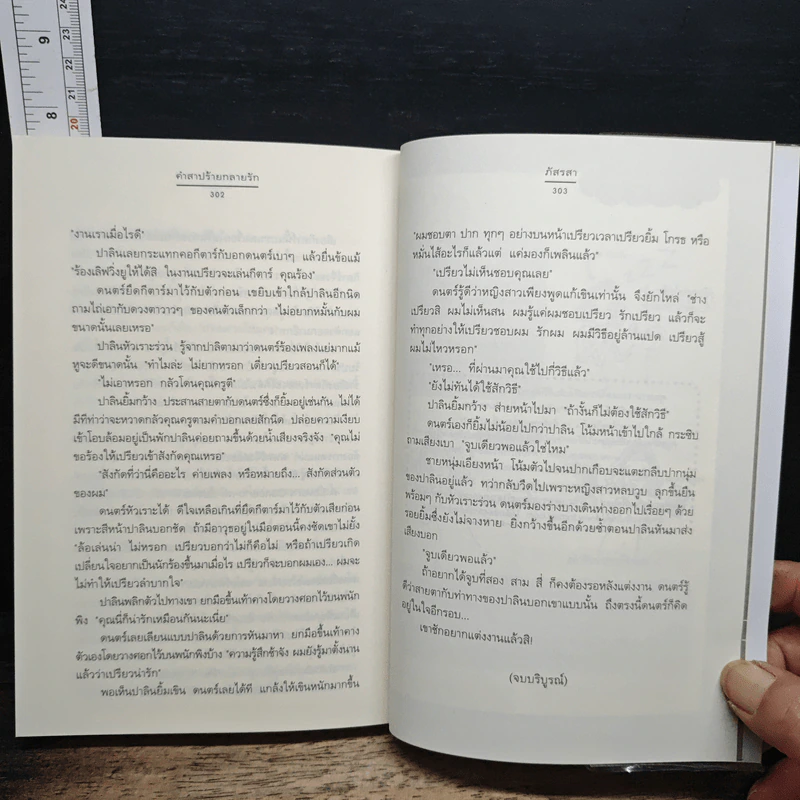 9
8
24
23
22
21
20
คำสาปร้ายกลายรัก
302
"งานเราเมื่อไรดี"
ปาลินเลยกระแทกคอกีตาร์กับอกดนตร์เบาๆ แล้วยื่นข้อแม้
"ร้องเลิฟวิ่งยูให้ได้สิ ในงานเปรียวจะเล่นกีตาร์ คุณร้อง"
ดนตร์ยึดกีตาร์มาไว้กับตัวก่อน เขยิบเข้าใกล้ปาลินอีกนิด
ถามไถ่เอากับดวงตาวาวๆ ของคนตัวเล็กกว่า "ไม่อยากหมั้นกับผม
ขนาดนั้นเลยเหรอ"
ปาลินหัวเราะร่วน รู้จากปาลิตามาว่าดนตร์ร้องเพลงแย่มากแม้
หูจะดีขนาดนั้น "ทำไมล่ะ ไม่ยากหรอก เดี๋ยวเปรียวสอนก็ได้"
"ไม่เอาหรอก กลัวโดนคุณครูตี"
ปาลินยิ้มกว้าง ประสานสายตากับดนตร์ซึ่งก็ยิ้มอยู่เช่นกัน ไม่ได้
มีทีท่าว่าจะหวาดกลัวคุณครูตามคำบอกเลยสักนิด ปล่อยความเงียบ
เข้าโอบล้อมอยู่เป็นพักปาลินค่อยถามขึ้นด้วยน้ำเสียงจริงจัง "คุณไม่
ขอร้องให้เปรียวเข้าสังกัดคุณเหรอ"
"สังกัดที่ว่านี่คืออะไร ค่ายเพลง หรือหมายถึง... สังกัดส่วนตัว
ของผม"
ดนตร์หัวเราะได้ ดีใจเหลือเกินที่ยึดกีตาร์มาไว้กับตัวเสียก่อน
เพราะสีหน้าปาลินบอกชัด ถ้ามีอาวุธอยู่ในมือตอนนี้คงซัดเขาไม่ยั้ง
"ล้อเล่นน่า ไม่หรอก เปรียวบอกว่าไม่ก็คือไม่ หรือถ้าเปรียวเกิด
เปลี่ยนใจอยากเป็นนักร้องขึ้นมาเมื่อไร เปรียวก็จะบอกผมเอง... ผมจะ
ไม่ทำให้เปรียวลำบากใจ"
ปาลินพลิกตัวไปทางเขา ยกมือขึ้นเท้าคางโดยวางศอกไว้บนพนัก
พิง "คุณนี่ก็น่ารักเหมือนกันนะเนี่ย"
ดนตร์เลยเลียนแบบปาลินด้วยการหันมาหา ยกมือขึ้นเท้าคาง
ตัวเองโดยวางศอกไว้บนพนักพิงบ้าง "ความรู้สึกช้าจัง ผมยังรู้มาตั้งนาน
แล้วว่าเปรียวน่ารัก"
พอเห็นปาลินยิ้มเขิน ดนตร์เลยได้ที แกล้งให้เขินหนักมากขึ้น
ภัสรสา
303
"ผมชอบตา ปาก ทุกๆ อย่างบนหน้าเปรียวเวลาเปรียวยิ้ม โกรธ หรือ
หมั่นไส้อะไรก็แล้วแต่ แค่มองก็เพลินแล้ว"
"เปรียวไม่เห็นชอบคุณเลย"
ดนตร์รู้ดีว่าหญิงสาวเพียงพูดแก้เขินเท่านั้น จึงยักไหล่ "ช่าง
เปรียวสิ ผมไม่เห็นสน ผมรู้แค่ผมชอบเปรียว รักเปรียว แล้วก็จะ
ทำทุกอย่างให้เปรียวชอบผม รักผม ผมมีวิธีอยู่ล้านแปด เปรียวสู้
ผมไม่ไหวหรอก"
"เหรอ... ที่ผ่านมาคุณใช้ไปกี่วิธีแล้ว"
"ยังไม่ทันได้ใช้สักวิธี"
ปาลินยิ้มกว้าง ส่ายหน้าไปมา "ถ้างั้นก็ไม่ต้องใช้สักวิธี"
ดนตร์เองก็ยิ้มไม่น้อยไปกว่าปาลิน โน้มหน้าเข้าไปใกล้ กระซิบ
ถามเสียงเบา "จูบเดียวพอแล้วใช่ไหม"
ชายหนุ่มเอียงหน้า โน้มตัวไปจนปากเกือบจะแตะกลีบปากนุ่ม
ของปาลินอยู่แล้ว ทว่ากลับวืดไปเพราะหญิงสาวหลบวูบ ลุกขึ้นยืน
พร้อมๆ กับหัวเราะร่วน ดนตร์มองร่างบางเดินห่างออกไปเรื่อยๆ ด้วย
รอยยิ้มซึ่งยังไม่จางหาย ยิ่งกว้างขึ้นอีกด้วยซ้ำตอนปาลินหันมาส่ง
เสียงบอก
"จูบเดียวพอแล้ว"
ถ้าอยากได้จูบที่สอง สาม สี่ ก็คงต้องรอหลังแต่งงาน ดนตร์รู้
ดีว่าสายตากับท่าทางของปาลินบอกเขาแบบนั้น ถึงตรงนี้ดนตร์ก็คิด
อยู่ในใจอีกรอบ...
เขาชักอยากแต่งงานแล้วสิ!
(จบบริบูรณ์)